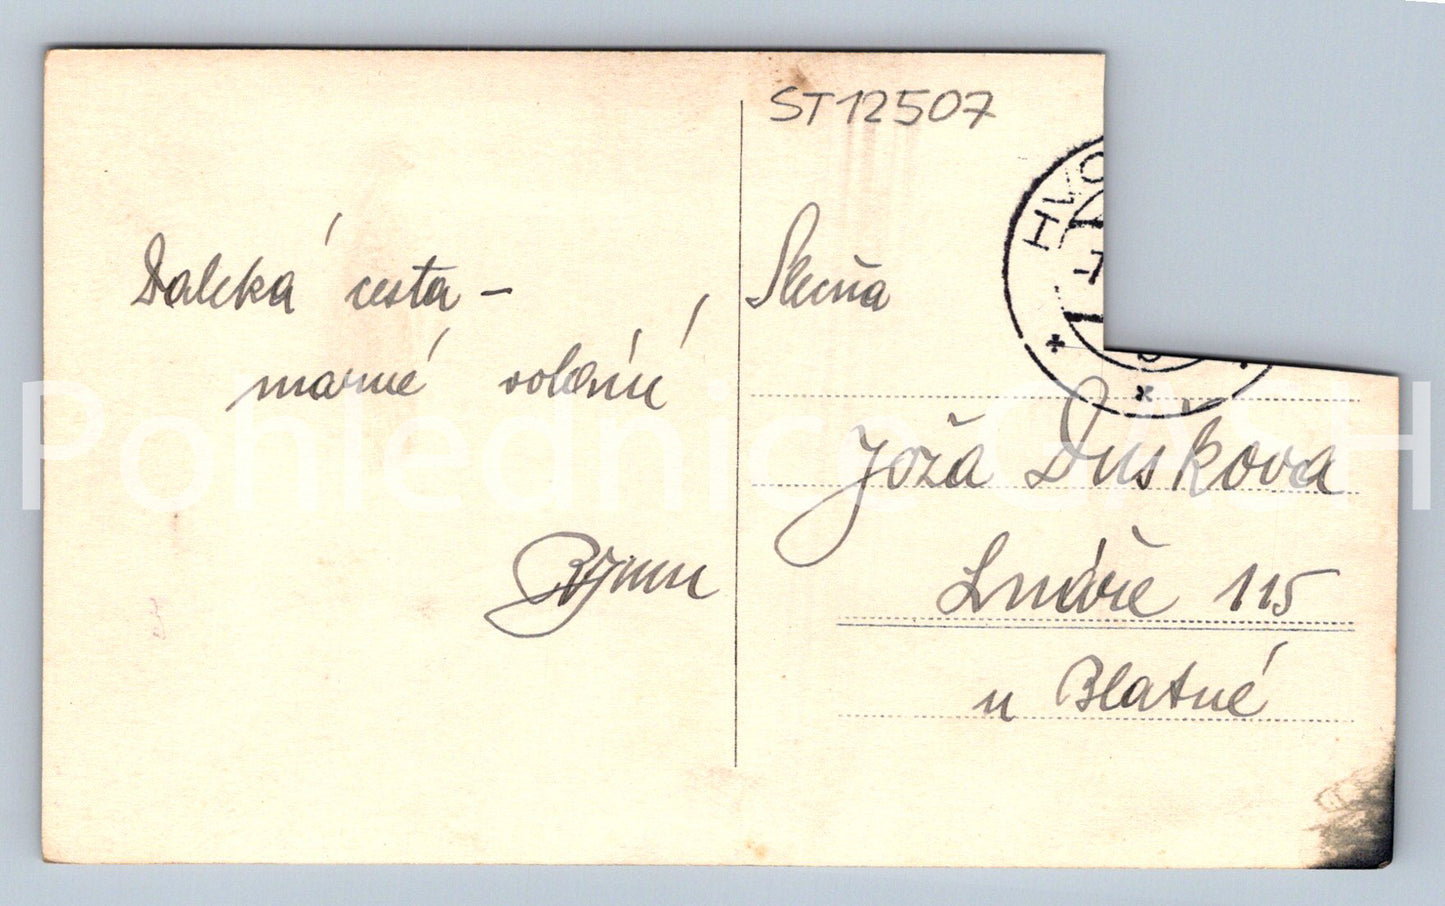 ST12507
HWO
Daleká cesta –
marné volání
Slečna
Joža Dušková
Lnáře 115
u Blatné
Pohlednice GASH